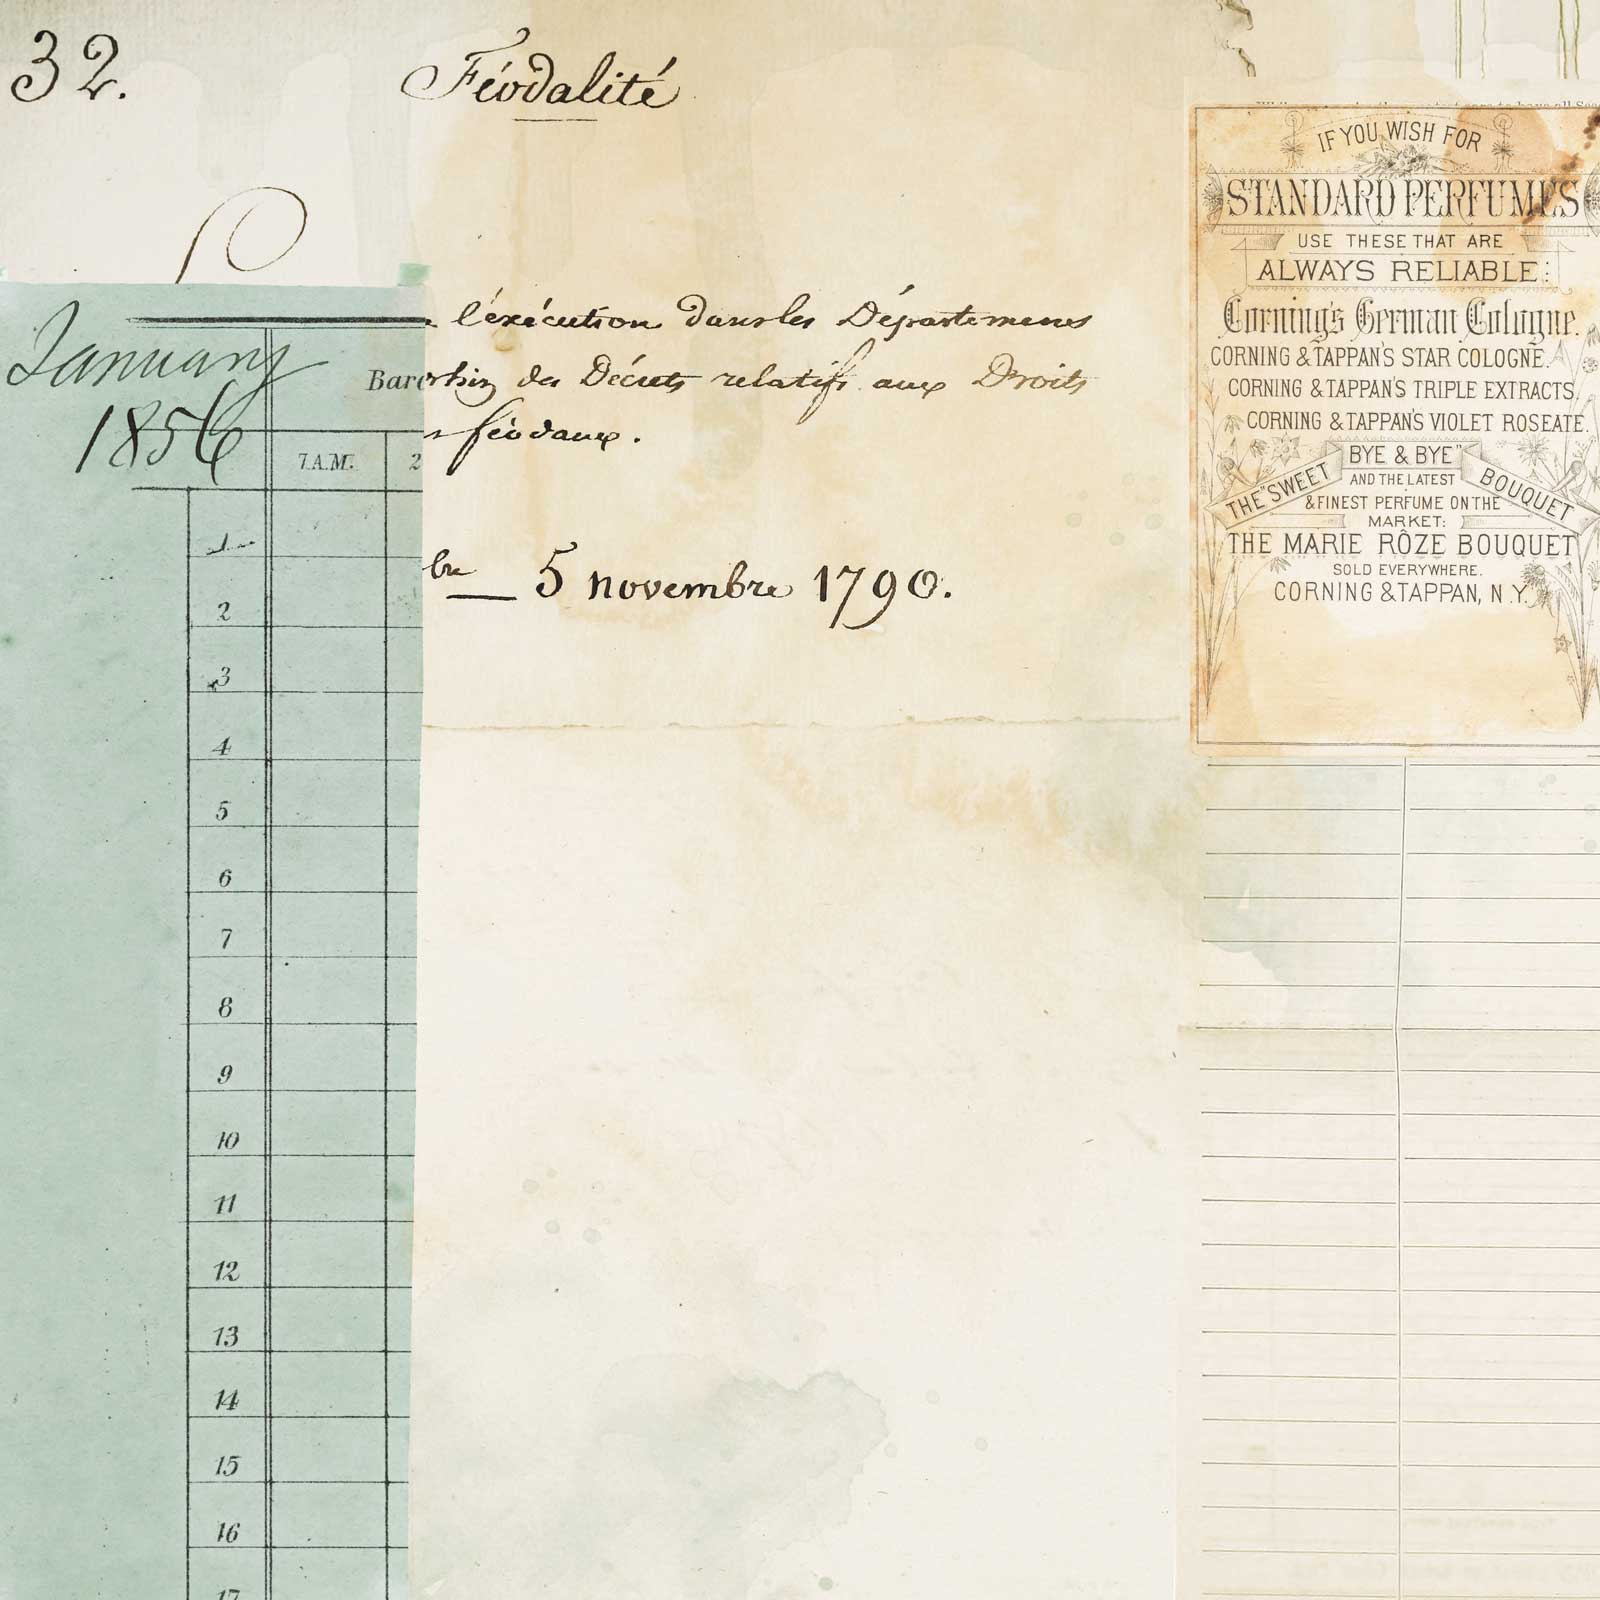 32.
Féodalité
l'éxécution dans les Départemens
rhin des Décrets relatifs aux Droits
féodaux.
bre 5 novembre 1790.
January
1856
Baro
7 A.M.
2
1
2
3
4
5
6
7
8
9
10
11
12
13
14
15
16
17
IF YOU WISH FOR
STANDARD PERFUMES
USE THESE THAT ARE
ALWAYS RELIABLE:
Corning's German Cologne.
CORNING & TAPPAN'S STAR COLOGNE.
CORNING & TAPPAN'S TRIPLE EXTRACTS.
CORNING & TAPPAN'S VIOLET ROSEATE.
THE "SWEET BYE & BYE" BOUQUET
AND THE LATEST
& FINEST PERFUME ON THE
MARKET:
THE MARIE RÔZE BOUQUET
SOLD EVERYWHERE.
CORNING & TAPPAN, N.Y.